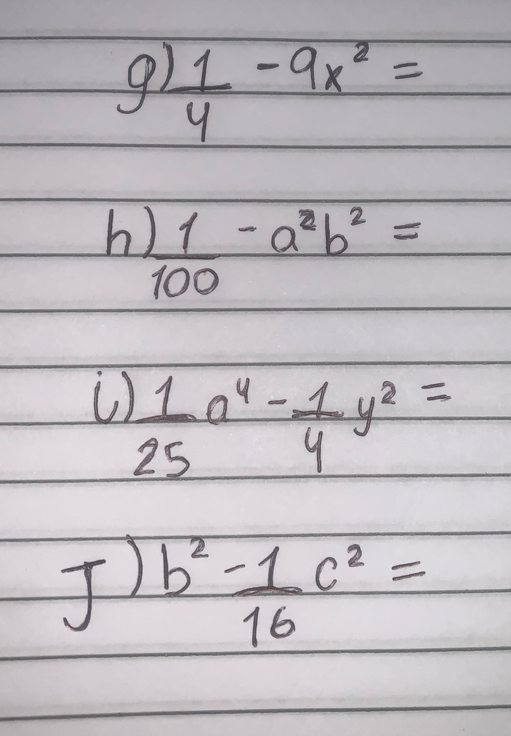 g) 1/4 - 9x² =
h) 1/100 - a²b² =
i) 1/25 a⁴ - 1/4 y² =
J) b² - 1/16 c² =